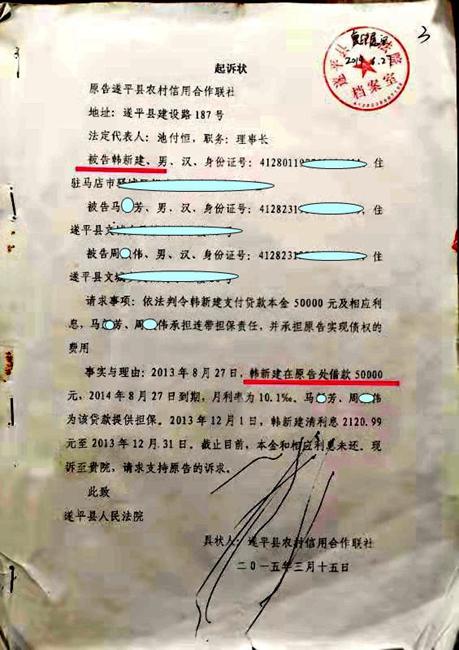 3
遂平县 法院
档案室
起诉状
原告遂平县农村信用合作联社
地址：遂平县建设路187号
法定代表人：池付恒，职务：理事长
被告韩新建、男、汉、身份证号：41280110 住
驻马店市驿城区
被告马 芳、男、汉、身份证号：4128231 住
遂平县文城
被告周 伟、男、汉、身份证号：4128231 住
遂平县文城
请求事项：依法判令韩新建支付贷款本金50000元及相应利
息，马 芳、周 伟承担连带担保责任，并承担原告实现债权的
费用
事实与理由：2013年8月27日，韩新建在原告处借款50000
元，2014年8月27日到期，月利率为10.1‰。马 芳、周 伟
为该贷款提供担保。2013年12月1日，韩新建清利息2120.99
元至2013年12月31日。截止目前，本金和相应利息未还。现
诉至贵院，请求支持原告的诉求。
此致
遂平县人民法院
具状人：遂平县农村信用合作联社
二〇一五年三月十五日